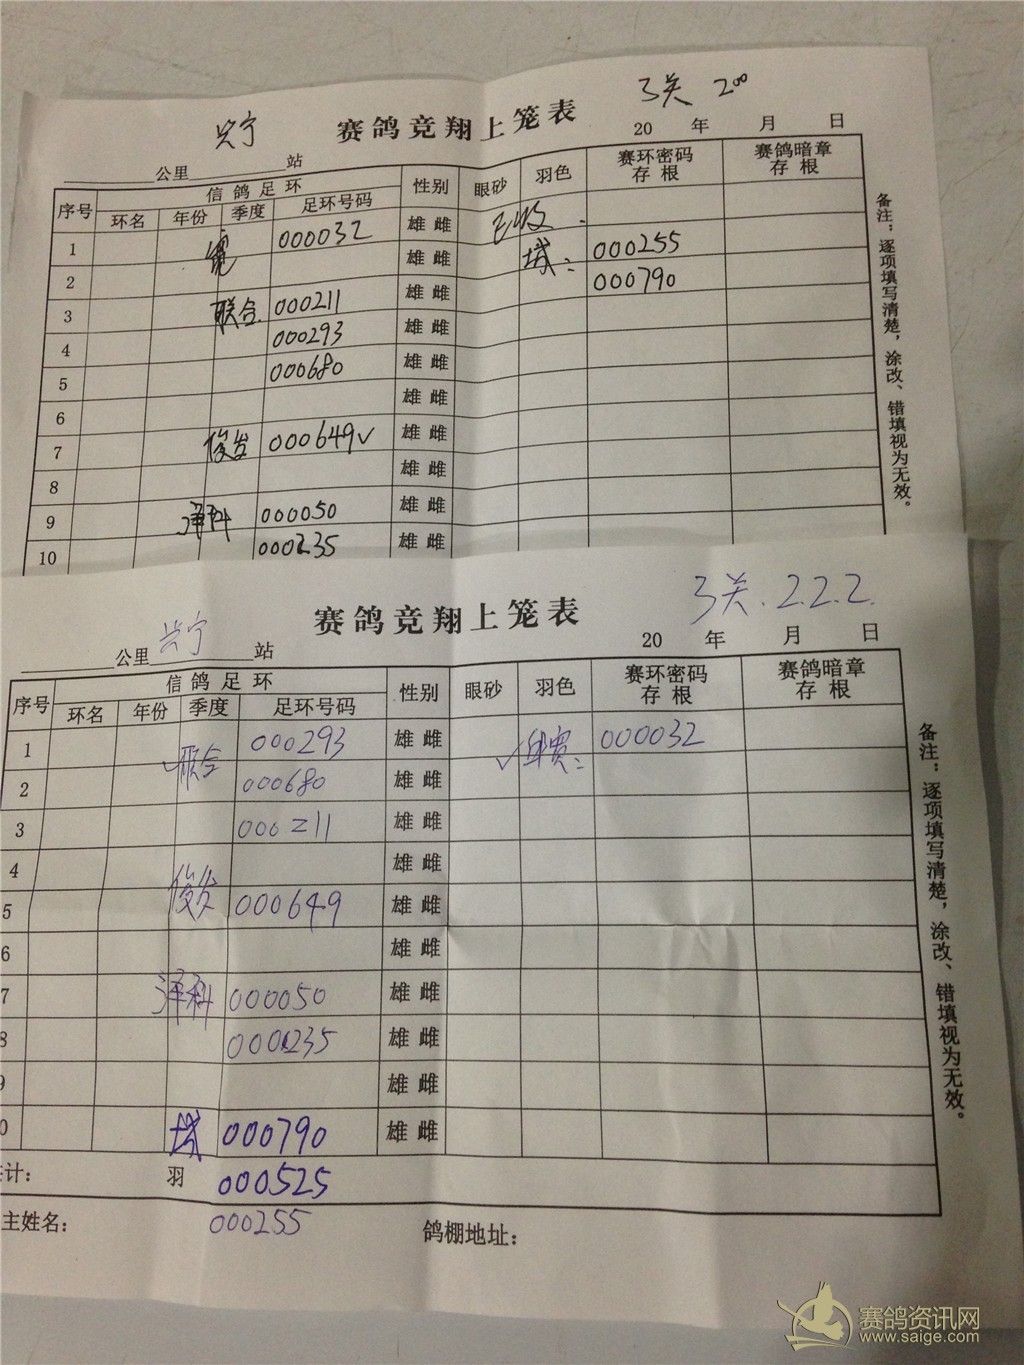 3关 200
兴宁 赛鸽竞翔上笼表
20 年 月 日
公里 站
序号 信鸽足环 性别 眼砂 羽色 赛环密码存根 赛鸽暗章存根
环名 年份 季度 足环号码
1 000032 雄 雌 已收
2 雄 雌 城: 000255
3 联合 000211 雄 雌 000790
4 000293 雄 雌
5 000680 雄 雌
6 雄 雌
7 俊发 000649√ 雄 雌
8 雄 雌
9 泽科 000050 雄 雌
10 000235 雄 雌
备注：逐项填写清楚，涂改、错填视为无效。
3关.222.
兴宁 赛鸽竞翔上笼表
20 年 月 日
公里 站
序号 信鸽足环 性别 眼砂 羽色 赛环密码存根 赛鸽暗章存根
环名 年份 季度 足环号码
1 联合 000293 雄 雌 000032
2 000680 雄 雌
3 000211 雄 雌
4 雄 雌
5 俊发 000649 雄 雌
6 雄 雌
7 泽科 000050 雄 雌
8 000235 雄 雌
9 雄 雌
0 城 000790 雄 雌
计： 羽 000525
主姓名： 000255 鸽棚地址：
备注：逐项填写清楚，涂改、错填视为无效。
赛鸽资讯网
www.saige.com